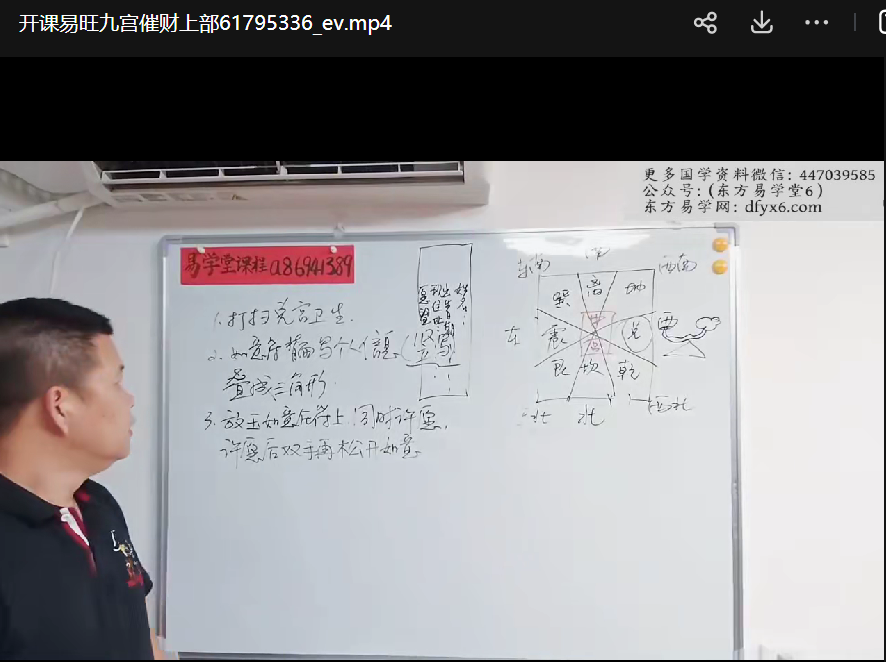 开课易旺九宫催财上部61795336_ev.mp4
更多国学资料微信：447039585
公众号：(东方易学堂6)
东方易学网：dfyx6.com
易学堂课程
1.打扫兑宫卫生.
2.如意符背面写个人信息(竖写
叠成三角形.
3.放玉如意在符上，同时许愿.
许愿后双手再松开如意
姓名：
南
东南
西南
巽
离
坤
东
震
中宫
兑
西
艮
坎
乾
北
西北